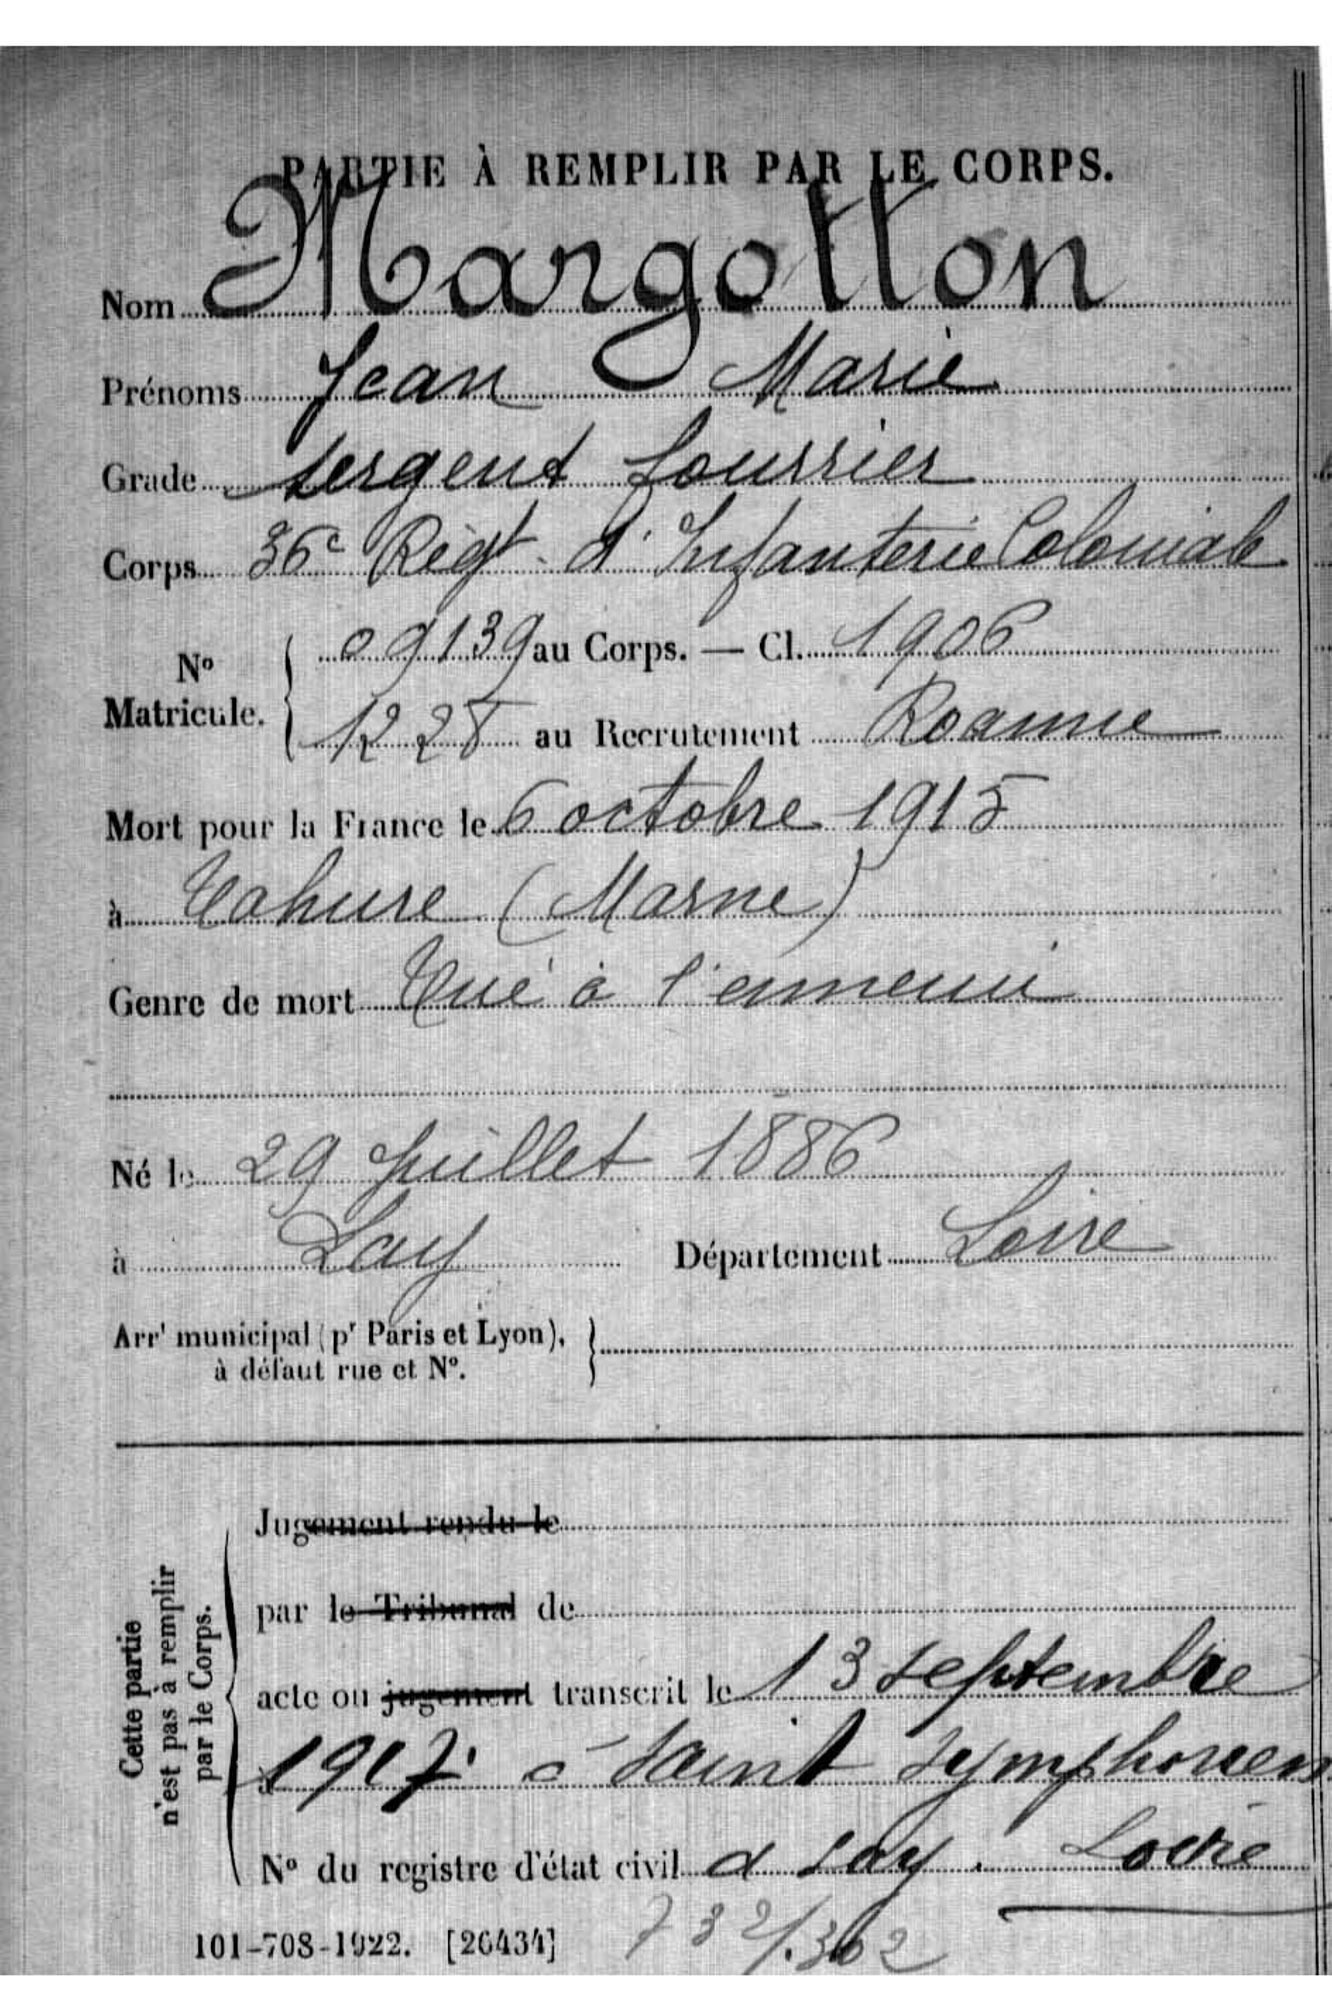 PARTIE À REMPLIR PAR LE CORPS.
Nom Margotton
Prénoms Jean Marie
Grade Sergent fourrier
Corps 36e Régt d'Infanterie Coloniale
No Matricule. { 09139 au Corps. — Cl. 1906
1228 au Recrutement Roanne
Mort pour la France le 6 octobre 1915
à Tahure (Marne)
Genre de mort Tué à l'ennemi
Né le 29 Juillet 1886
à Lay Département Loire
Arrt municipal (pr Paris et Lyon), }
à défaut rue et No.
Cette partie
n'est pas à remplir
par le Corps.
Jugement rendu le
par le Tribunal de
acte ou jugement transcrit le 13 septembre
à 1917 à Saint Symphorien
No du registre d'état civil d Lay. Loire
101-708-1922. [26434]